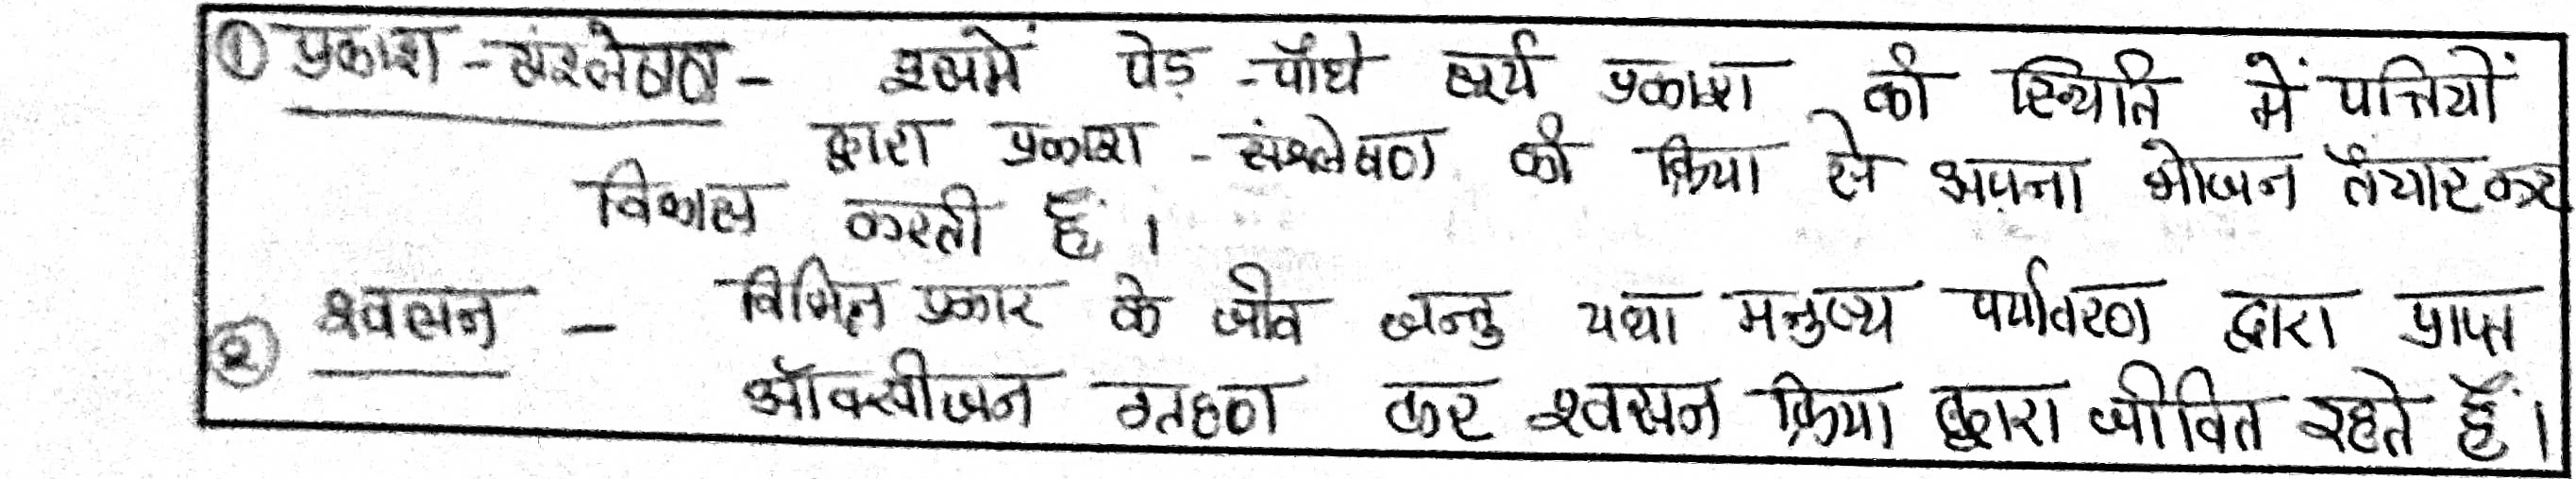 ① प्रकाश-संश्लेषण - इसमें पेड़-पौधे सूर्य प्रकाश की स्थिति में पत्तियों
द्वारा प्रकाश-संश्लेषण की क्रिया से अपना भोजन तैयार कर
विकास करती हैं।
② श्वसन - विभिन्न प्रकार के जीव जन्तु यथा मनुष्य पर्यावरण द्वारा प्राप्त
ऑक्सीजन ग्रहण कर श्वसन क्रिया द्वारा जीवित रहते हैं।